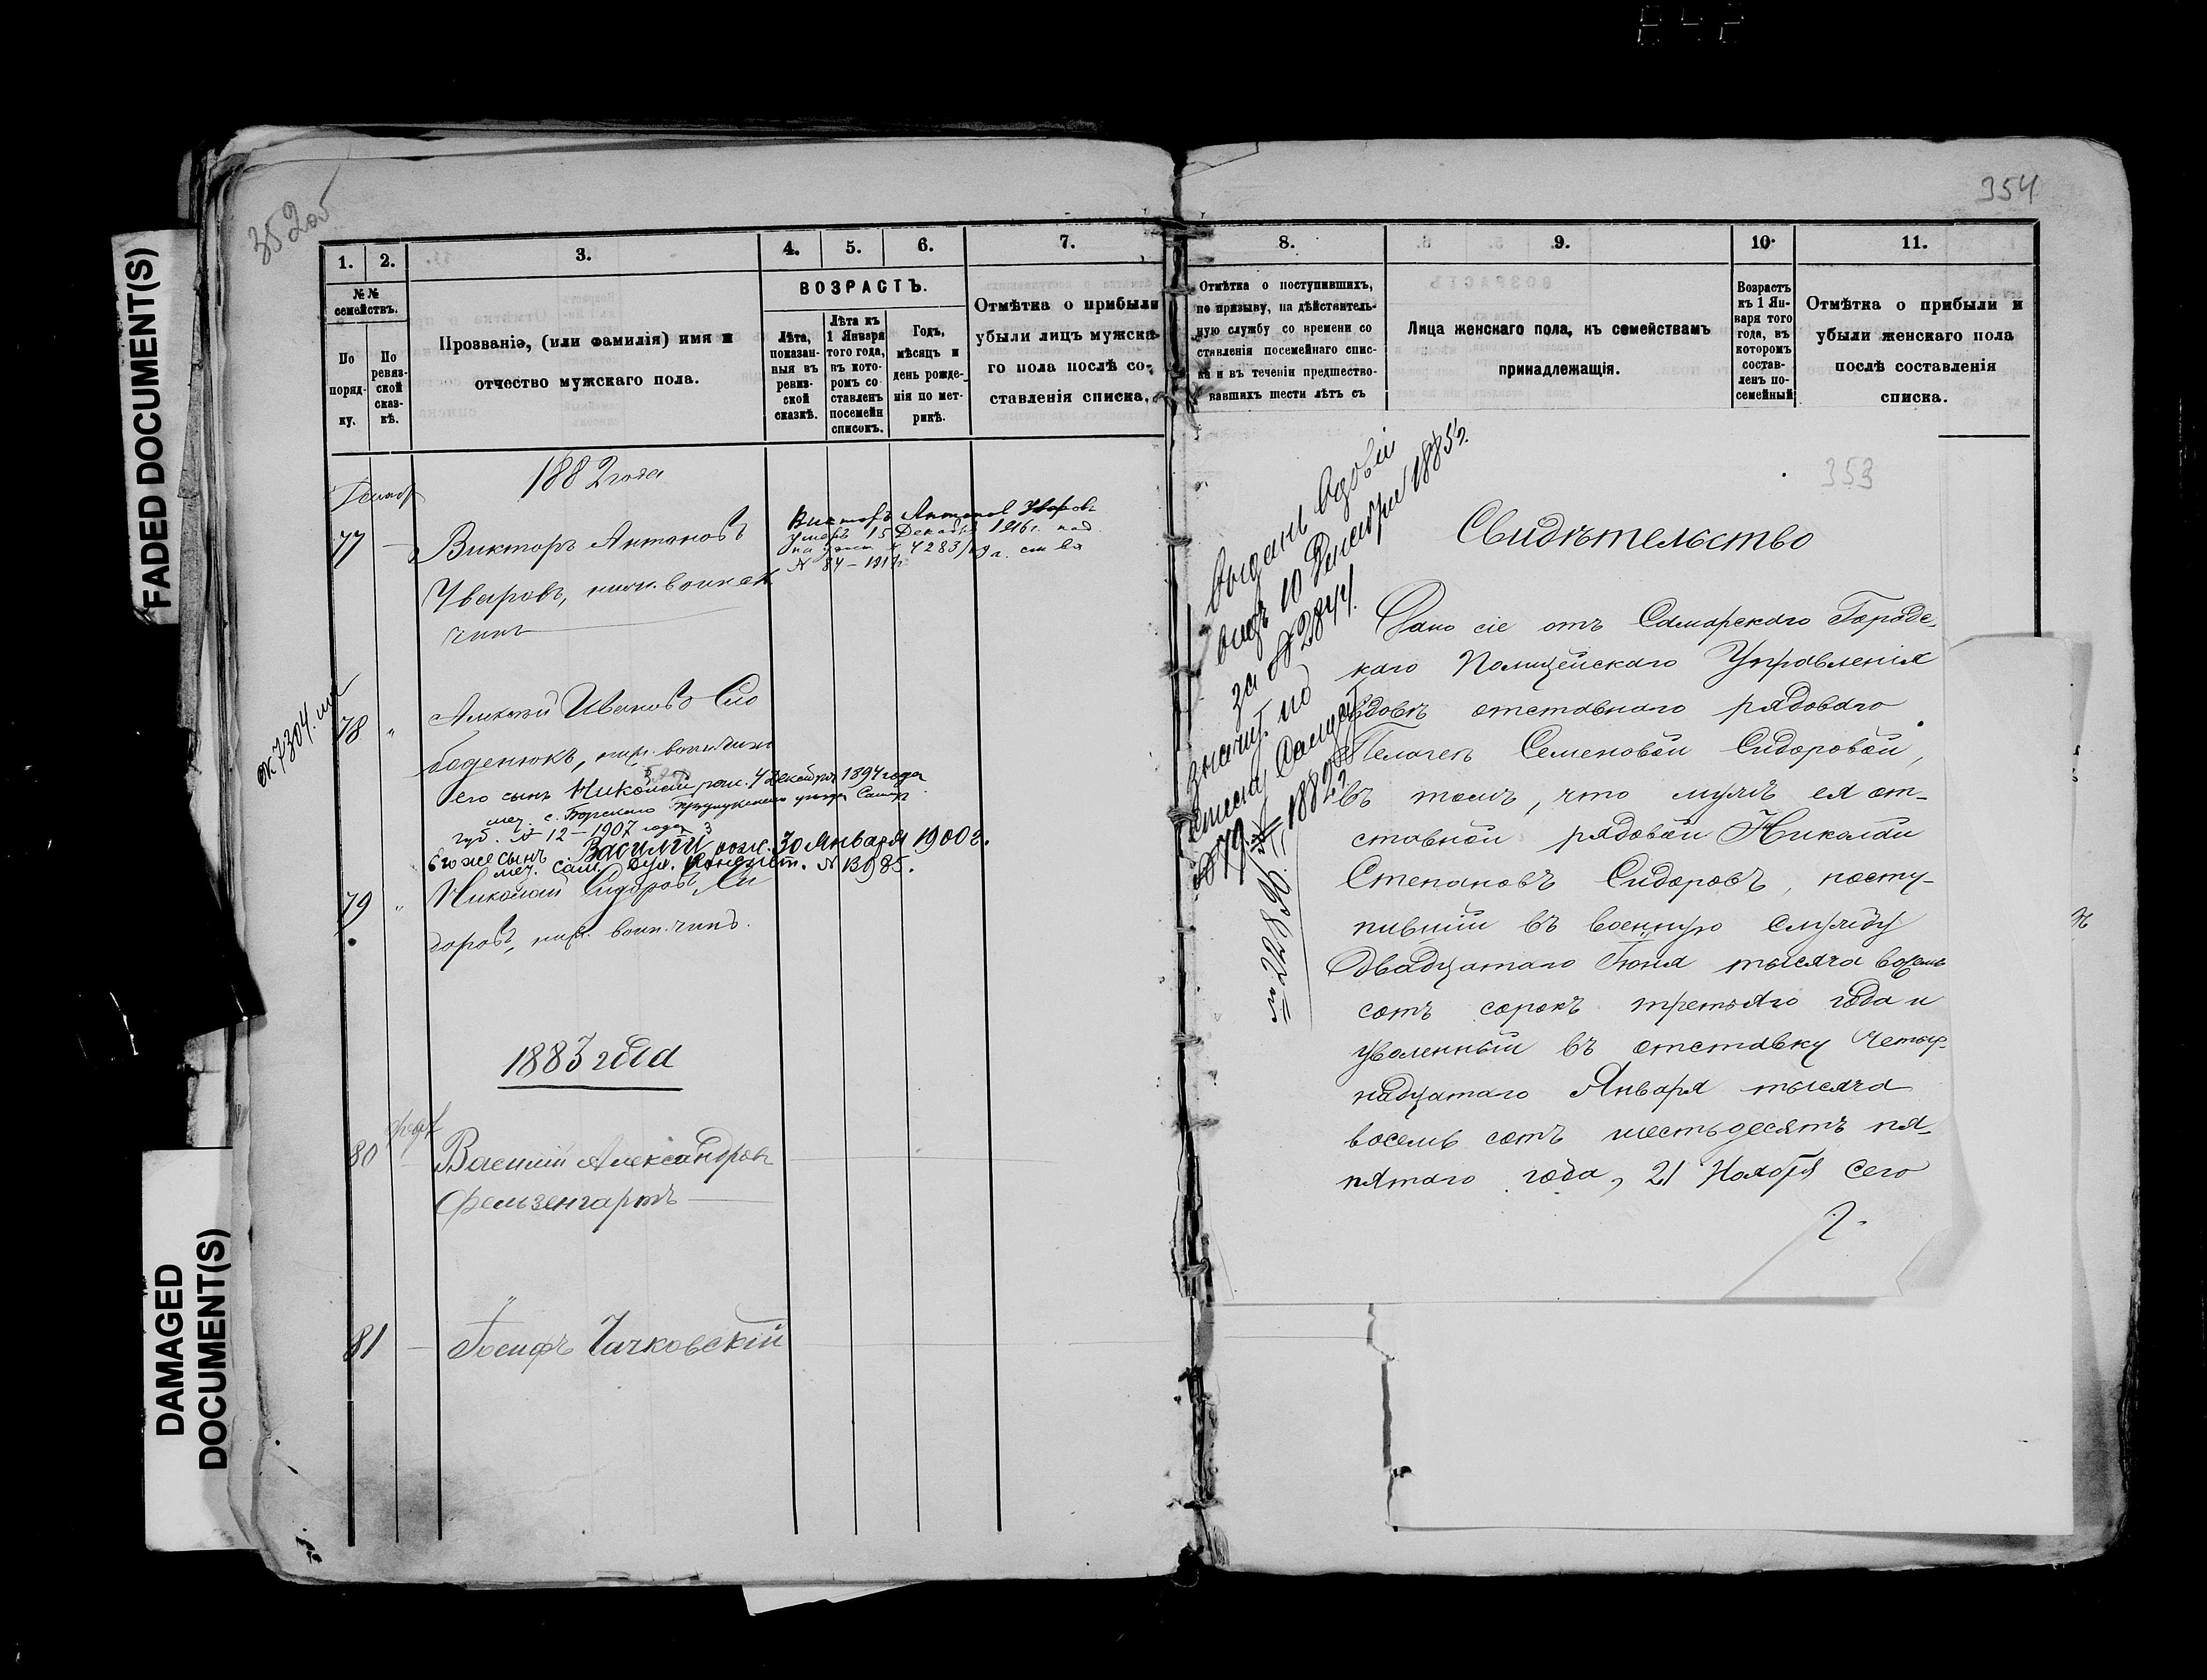 FADED DOCUMENT(S)
DAMAGED
DOCUMENT(S)
352об
354
1.
2.
3.
4.
5.
6.
7.
№№
семействъ.
По
поряд-
ку.
По
ревиз-
ской
сказ-
кѣ.
Прозваніе, (или фамилія) имя и
отчество мужскаго пола.
ВОЗРАСТЪ.
Лѣта,
показан-
ныя въ
ревиз-
ской
сказкѣ.
Лѣта къ
1 Января
того года,
въ кото-
ромъ со
ставленъ
посемейн
списокъ.
Годъ,
мѣсяцъ и
день рожде-
нія по мет-
рикѣ.
Отмѣтка о прибыли
убыли лицъ мужска-
го пола послѣ со-
ставленія списка.
1882 года
Декабр
77
Викторъ Антоновъ
Уваровъ, нижн. воинск
чинъ
Викторъ Антонов Уваровъ
умеръ 15 Декабря 1916 г.
N 84 – 191
78 "
Алексѣй Ивановъ Сло
боденюкъ, ниж. воин. чинъ
его сынъ Николай рож. 4 Декабря 1894 года
мет. с. Борского Бузулукскаго уѣзда Самар
губ. № 12 – 1907 года
Его же сынъ Василій рож. 30 Января 1900 г.
мет. Сам. Дух. Консист. N 13985.
79 "
Николай Сидоровъ, Си
доровъ, ниж. воин. чинъ.
1883 года
80
Василій Александровъ
Фельзенгартъ
81
Іосифъ Чачковскій
8.
9.
10.
11.
Отмѣтка о поступившихъ,
по призыву, на дѣйствитель-
ную службу со времени со
ставленія посемейнаго спис-
ка и въ теченіи предшество-
вавшихъ шести лѣтъ съ
Лица женскаго пола, къ семействамъ
принадлежащія.
Возрастъ
къ 1 Ян-
варя того
года, въ
которомъ
состав-
ленъ по-
семейный
Отмѣтка о прибыли и
убыли женскаго пола
послѣ составленія
списка.
353
Выданъ вдовій
видъ 10 Декабря 1885 г.
за № 2844.
значит. по
№ 79 1882
№ 22896.
Свидѣтельство
Дано сіе отъ Самарскаго Городс-
каго Полицейскаго Управленія
вдовѣ отставнаго рядоваго
Пелагеѣ Семеновой Сидоровой,
въ томъ, что мужъ ея от-
ставной рядовой Николай
Степановъ Сидоровъ, посту-
пившій въ военную службу
двадцатаго Іюня тысяча восемь
сотъ сорокъ третьяго года и
уволенный въ отставку четыр-
надцатаго Января тысяча
восемь сотъ шестьдесятъ пя-
пятаго года, 21 Ноября сего
г.